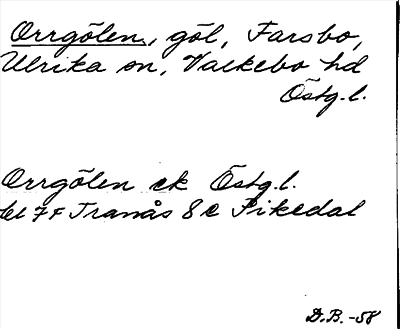 Orrgölen, göl, Farsbo,
Ulrika sn, Valkebo hd
Östg.l.
Orrgölen ek Östg.l.
bl 7F Tranås 8 c Pikedal
D.B. -58